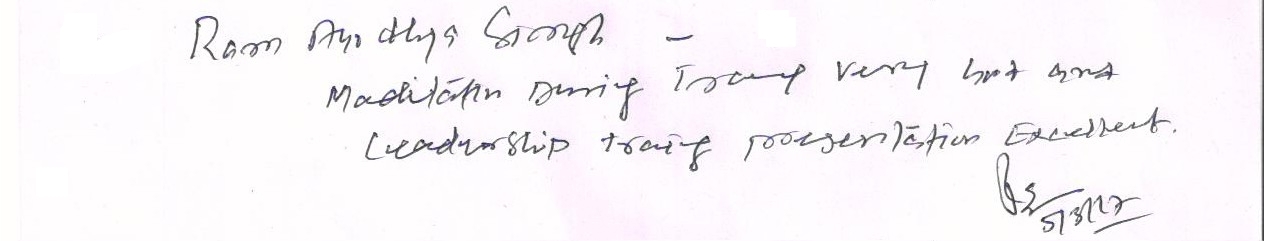 Ram Ayodhya Singh -
Maditation During Traing very but and
Leadership traing presentation Excellent.
5/3/17